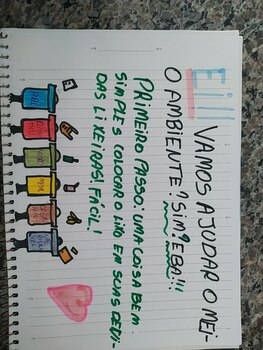 Ei!!
VAMOS AJUDAR O MEI-
O AMBIENTE? SIM? EBA!!!
PRIMEIRO PASSO: UMA COISA BEM
SIMPLES COLOCAR O LIXO EM SUAS DEVI-
DAS LIXEIRAS! FÁCIL!